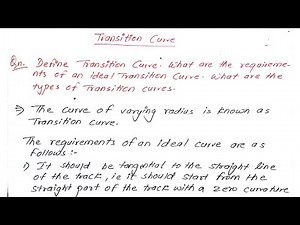 Transition Curve
Qn. Define Transition Curve. What are the requireme-
nts of an Ideal Transition Curve. What are the
types of Transition curves.
⇒ The curve of varying radius is known as
Transition curve.
The requirements of an Ideal curve are as
follows :-
1) It should be tangential to the straight line
of the track, ie it should start from the
straight part of the track with a zero curvature